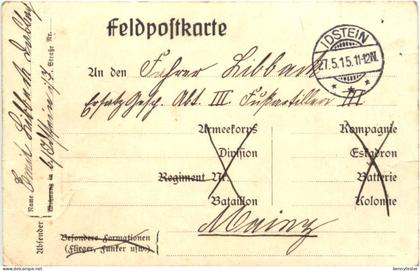 Feldpostkarte
IDSTEIN
27.5.15.11-12N.
An den Fahrer Libbach
Ersatz Gesch. Abt. III Fußartillerie III
Armeekorps Kompagnie
Division Eskadron
Regiment Nr. Batterie
Bataillon Kolonne
Mainz
Besondere Formationen
(Flieger, Funker usw.)
Absender
Name Emil Libbach
Wohnung Straße Nr.